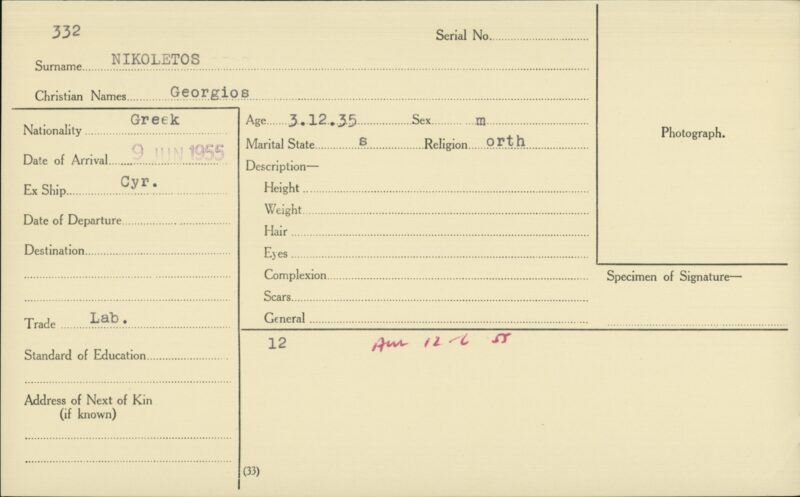 332
Serial No.
Surname NIKOLETOS
Christian Names Georgios
Nationality Greek
Date of Arrival 9 JUN 1955
Ex Ship Cyr.
Date of Departure
Destination
Trade Lab.
Standard of Education
Address of Next of Kin
(if known)
Age 3.12.35 Sex m
Marital State s Religion orth
Description—
Height
Weight
Hair
Eyes
Complexion
Scars
General
12 Arr 12 6 55
(33)
Photograph.
Specimen of Signature—